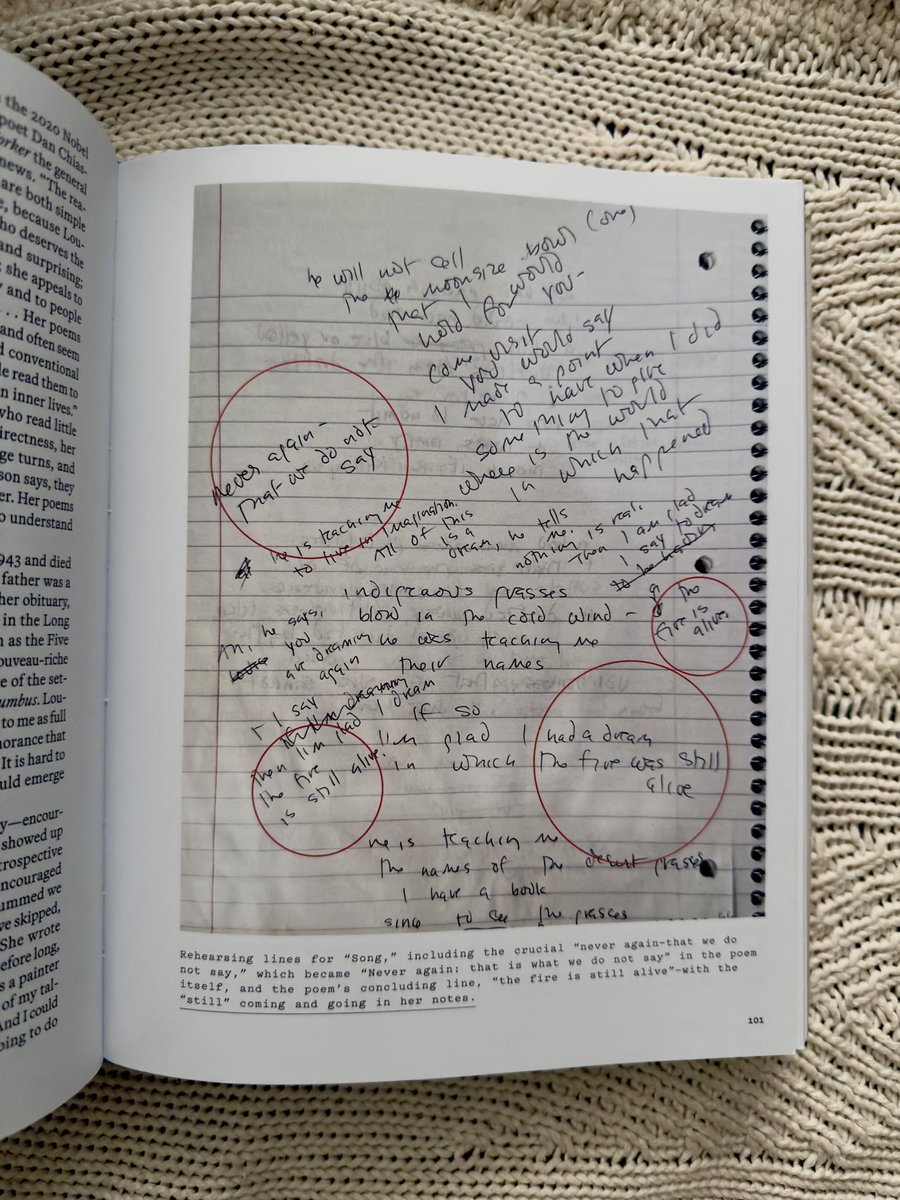 n the 2020 Nobel
poet Dan Chias-
orker the general
news. "The rea-
are both simple
e, because Lou-
ho deserves the
and surprising;
; she appeals to
y and to people
. . . Her poems
and often seem
d conventional
le read them to
n inner lives."
who read little
irectness, her
ge turns, and
son says, they
er. Her poems
o understand
943 and died
father was a
her obituary,
in the Long
n as the Five
ouveau-riche
e of the set-
umbus. Lou-
to me as full
norance that
It is hard to
ould emerge
y—encour-
showed up
trospective
ncouraged
ummed we
ve skipped,
She wrote
efore long,
s a painter
of my tal-
And I could
oing to do
he will not sell
the moonsize bowl (one)
that I would
hold for you-
come visit
you would say
I made a point
to have when I did
something to give
where is the world
in which that
happened
never again-
that we do not-
say
he is teaching me
to live in imagination.
All of this
is a
dream, he tells
me.
nothing is real.
Then I am glad
I say to dream
the
fire is
alive.
indigenous grasses
blow in the cold wind -
he was teaching me
their names
Ah, he says,
you
are dreaming
again
+ I say
then I'm glad I dream
the fire
is still alive.
if so
I'm glad I had a dream
in which the fire was still
alive
he is teaching me
the names of the desert grasses
I have a book
since to see the grasses
Rehearsing lines for "Song," including the crucial "never again–that we do
not say," which became "Never again: that is what we do not say" in the poem
itself, and the poem's concluding line, "the fire is still alive"–with the
"still" coming and going in her notes.
101